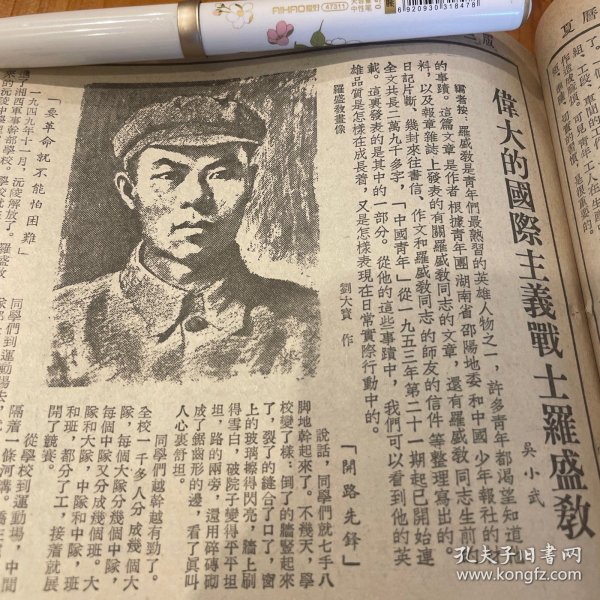 AIHAO 愛好 47311
中性笔
6 920930 318478
夏曆
偉大的國際主義戰士羅盛教
吳小武
編者按：羅盛敎是青年們最熟習的英雄人物之一，許多青年都渴望知道他
的事蹟。這篇文章是作者根據青年團湖南省邵陽地委和中國少年報社的材
料，以及報章雜誌上發表的有關羅盛敎同志的文章，還有羅盛敎同志生前的
日記片斷、幾封來往書信、作文和羅盛敎同志的師友的信件等整理寫出的。
全文共長二萬九千多字，「中國青年」從一九五三年第二十一期起已開始連
載。這裏發表的是其中的一部分。從他的這些事蹟中，我們可以看到他的英
雄品質是怎樣在成長着，又是怎樣表現在日常實際行動中的。
羅盛敎畫像
劉大寶 作
「要革命就不能怕困難」
一九四九年十一月，沅陵解放了。
湘西軍事幹部學校。
「開路先鋒」
說話，同學們就七手八
脚地幹起來了。不幾天，學
校變了樣：倒了的牆豎起來
了，裂了的縫合了口了，窗
上的玻璃擦得閃亮，牆上刷
得雪白，破院子變得平平坦
坦，路的兩旁，還用碎磚砌
成了鋸齒形的邊，看了眞叫
人心裏舒坦。
同學們越幹越有勁了。
全校一千多人分成幾個大
隊，每個大隊分成幾個中隊，
每個中隊又分成幾個班。大
隊和大隊，中隊和中隊，班
和班，都分了工，接着就展
開了競賽。
從學校到運動場，中間
隔着一條河溝。
同學們到運動場去，
孔夫子旧书网
www.kongfz.com